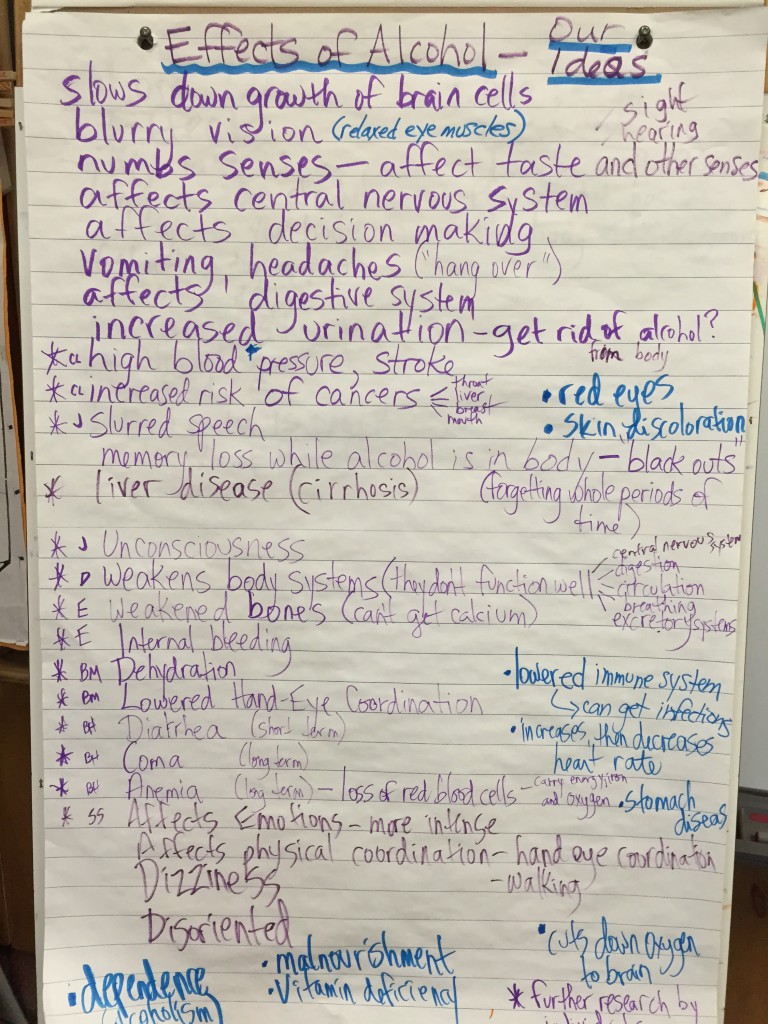 Effects of Alcohol — Our Ideas
slows down growth of brain cells
blurry vision (relaxed eye muscles)
sight
hearing
numbs senses — affect taste and other senses
affects central nervous system
affects decision making
vomiting, headaches ("hang over")
affects digestive system
increased urination - get rid of alcohol?
from body
* a high blood pressure, stroke
* a increased risk of cancers
throat
liver
breast
mouth
• red eyes
* J Slurred speech
• skin discoloration
memory loss while alcohol is in body - "black outs"
* liver disease (cirrhosis) (forgetting whole periods of
time)
* J Unconsciousness
* D Weakens body systems (they don't function well
central nervous system
digestion
circulation
breathing
excretory systems
* E Weakened bones (can't get calcium)
* E Internal bleeding
* BM Dehydration
• lowered immune system
↳ can get infections
* BM Lowered Hand-Eye Coordination
* BH Diarrhea (short term)
• increases, then decreases
heart rate
* BH Coma (long term)
* BH Anemia (long term) - loss of red blood cells - carry energy, iron
and oxygen
• stomach
diseas
* SS Affects Emotions - more intense
Affects physical coordination - hand eye coordination
- walking
Dizziness
Disoriented
• cuts down oxygen
to brain
• malnourishment
• Vitamin deficiency
• dependence
(alcoholism)
* further research by